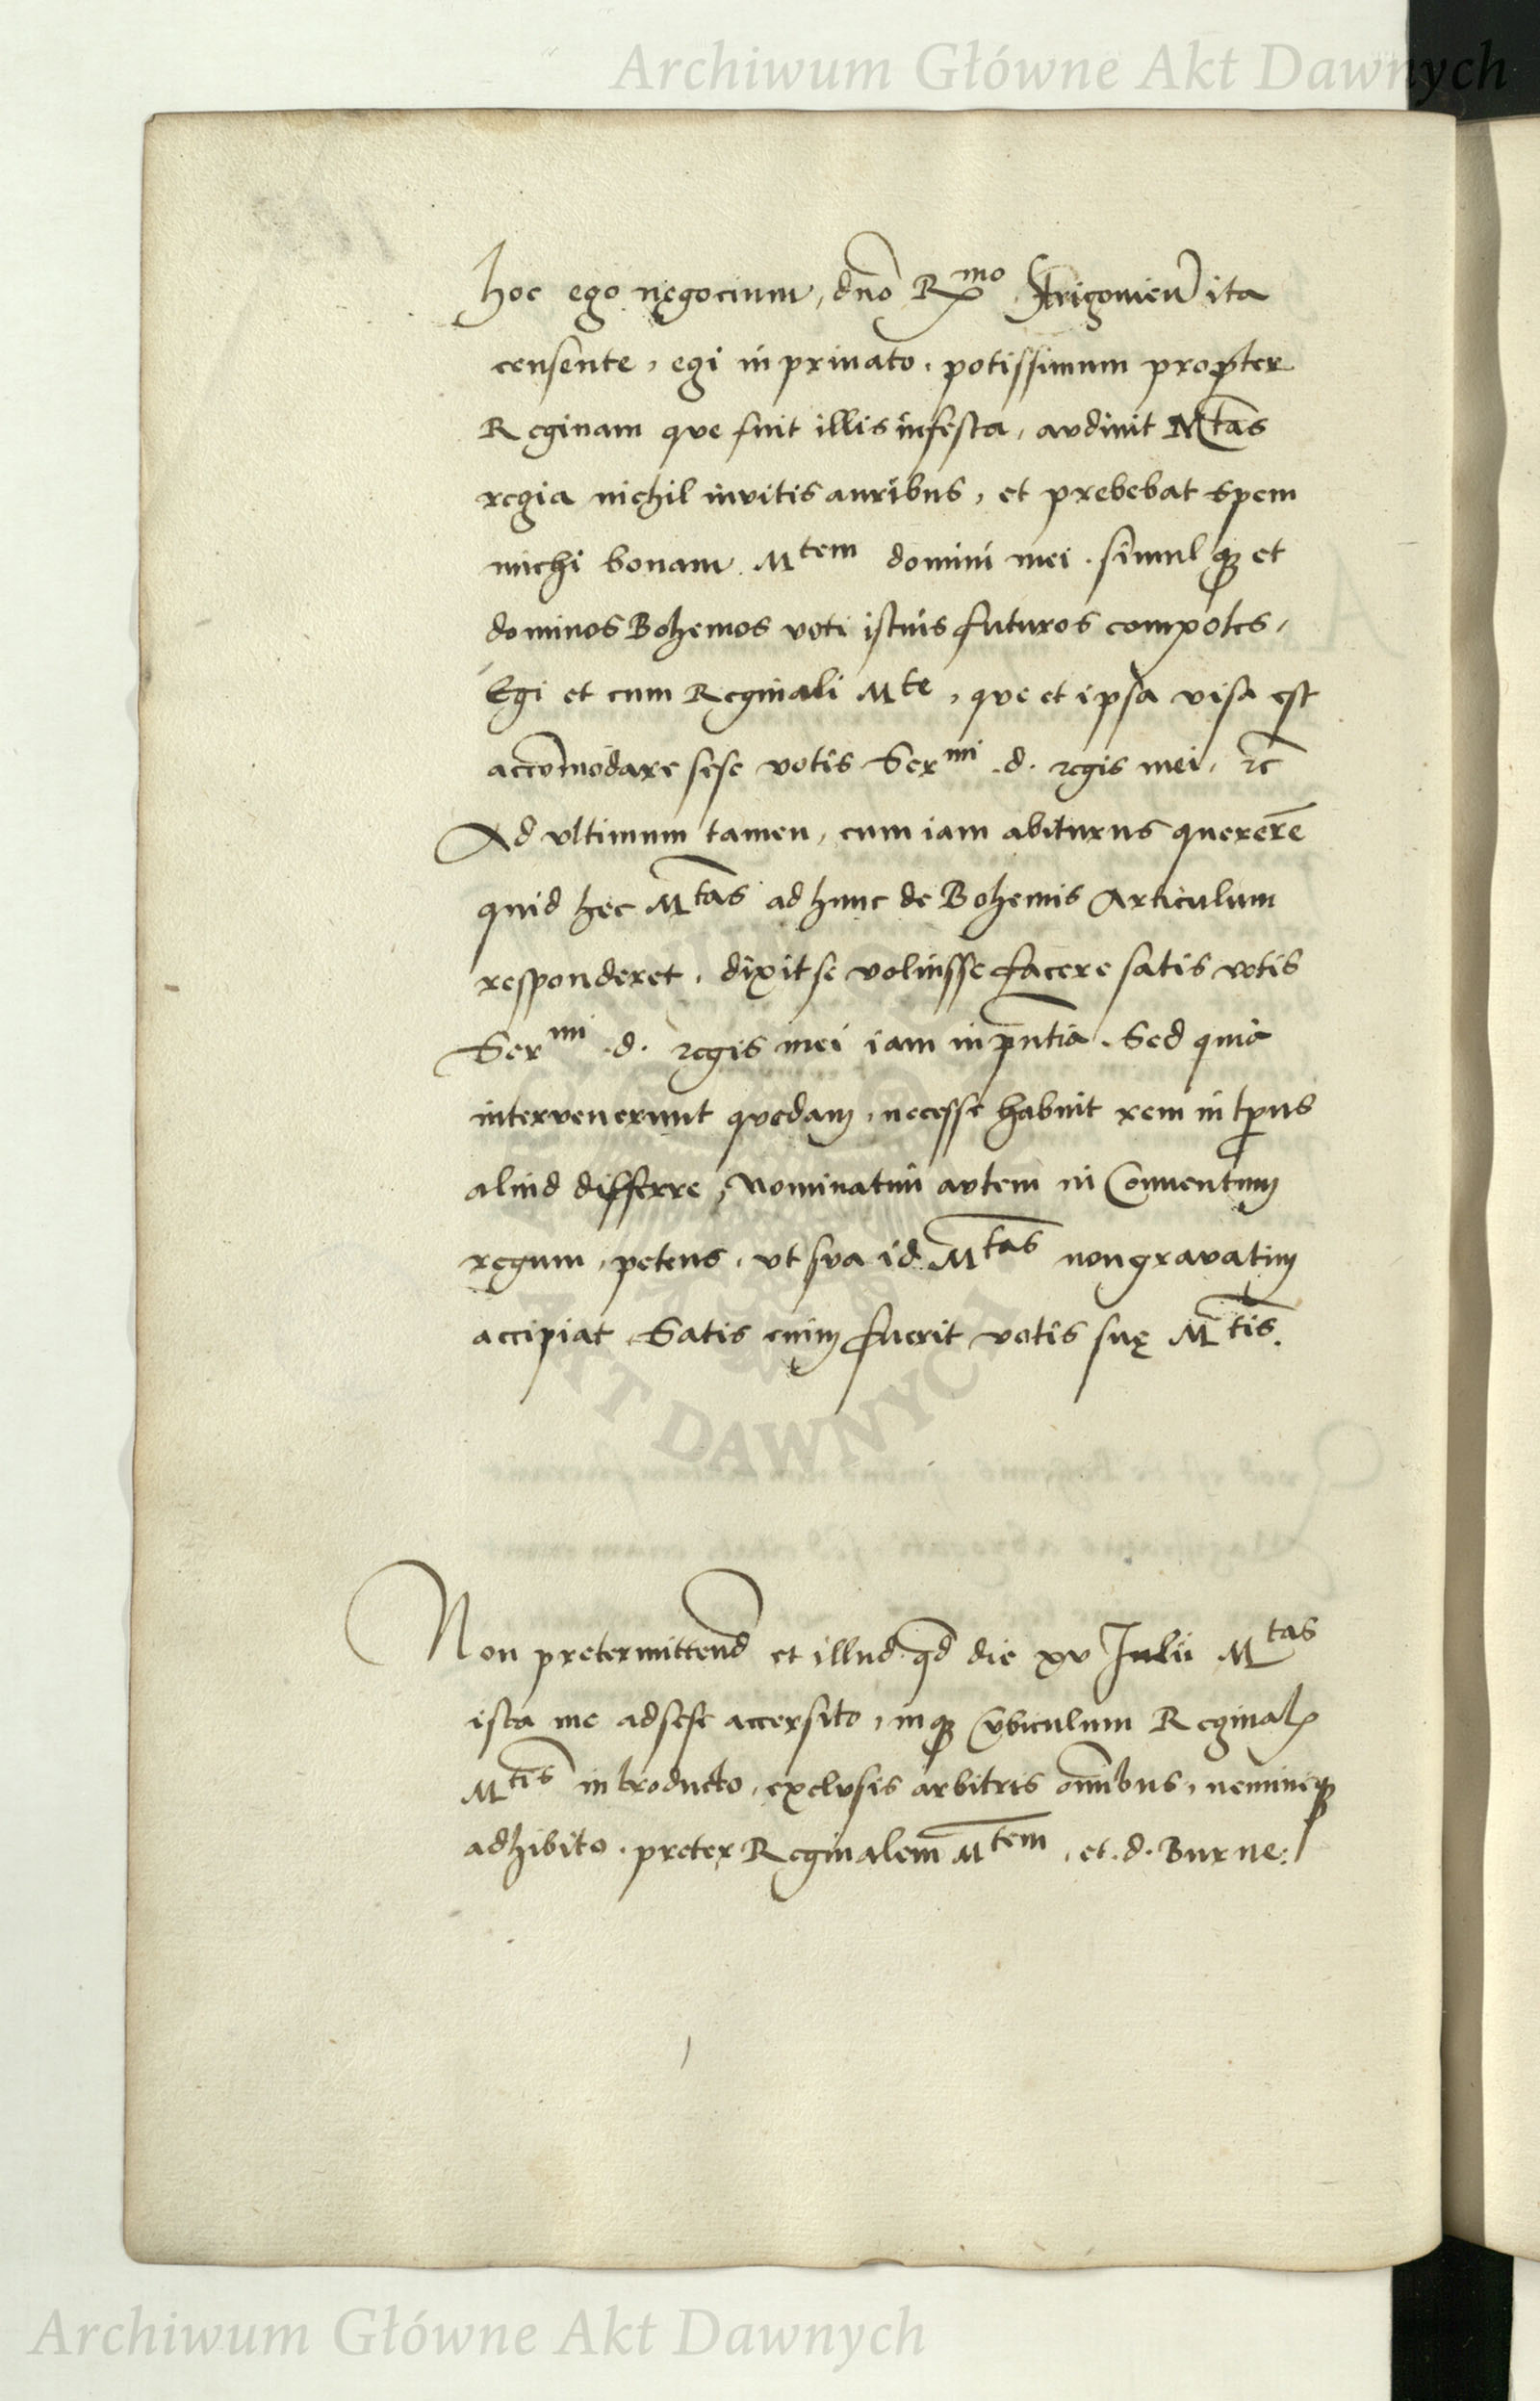 Archiwum Główne Akt Dawnych
hoc ego negocium, dno Rmo Strigonien ita
censente, egi in privato. potissimum propter
Reginam que fuit illis infesta, audivit Mtas
regia nichil invitis auribus, et prebebat spem
michi bonam. Mtem domini mei. simulqꝫ et
dominos Bohemos voti istius futuros compotes,
Egi et cum Reginali Mte, que et ipsa visa est
accomodare sese votis Sermi .d. regis mei, ꝛc
Ad ultimum tamen, cum iam abiturus quererē
quid hec Mtas ad hunc de Bohemis Articulum
responderet. dixit se voluisse facere satis votis
Sermi .d. regis mei iam in pn̄tia. Sed quia
intervenerunt quedam, necesse habuit rem in tp̄us
aliud differre, Nominatim autem in Conventum
regum, petens, ut sua id Mtas non gravatim
accipiat. Satis enim fuerit votis suę Mtis.
Non pretermittend et illud qd die xv Julii Mtas
ista me ad sese accersito, inqꝫ Cubiculum Reginal
Mtis introducto, exclusis arbitris om̄ibus, nemineqꝫ
adhibito. preter Reginalem Mtem, et .d. Burne:
AKT DAWNYCH
Archiwum Główne Akt Dawnych